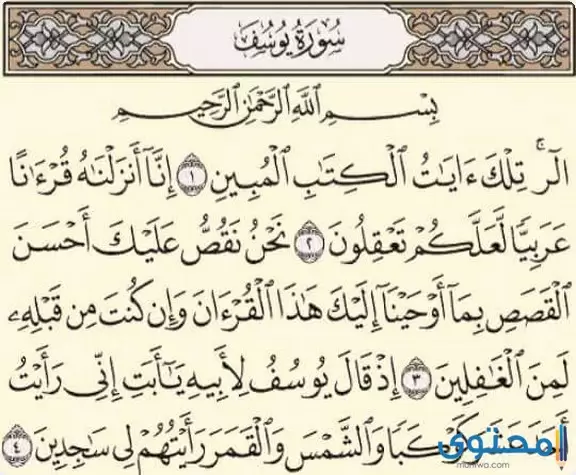 سُورَةُ يُوسُفَ
بِسْمِ ٱللَّهِ ٱلرَّحْمَٰنِ ٱلرَّحِيمِ
الٓرۚ تِلۡكَ ءَايَٰتُ ٱلۡكِتَٰبِ ٱلۡمُبِينِ ١ إِنَّآ أَنزَلۡنَٰهُ قُرۡءَٰنًا
عَرَبِيّٗا لَّعَلَّكُمۡ تَعۡقِلُونَ ٢ نَحۡنُ نَقُصُّ عَلَيۡكَ أَحۡسَنَ
ٱلۡقَصَصِ بِمَآ أَوۡحَيۡنَآ إِلَيۡكَ هَٰذَا ٱلۡقُرۡءَانَ وَإِن كُنتَ مِن قَبۡلِهِۦ
لَمِنَ ٱلۡغَٰفِلِينَ ٣ إِذۡ قَالَ يُوسُفُ لِأَبِيهِ يَٰٓأَبَتِ إِنِّي رَأَيۡتُ
كَوۡكَبٗا وَٱلشَّمۡسَ وَٱلۡقَمَرَ رَأَيۡتُهُمۡ لِي سَٰجِدِينَ ٤
المحتوى